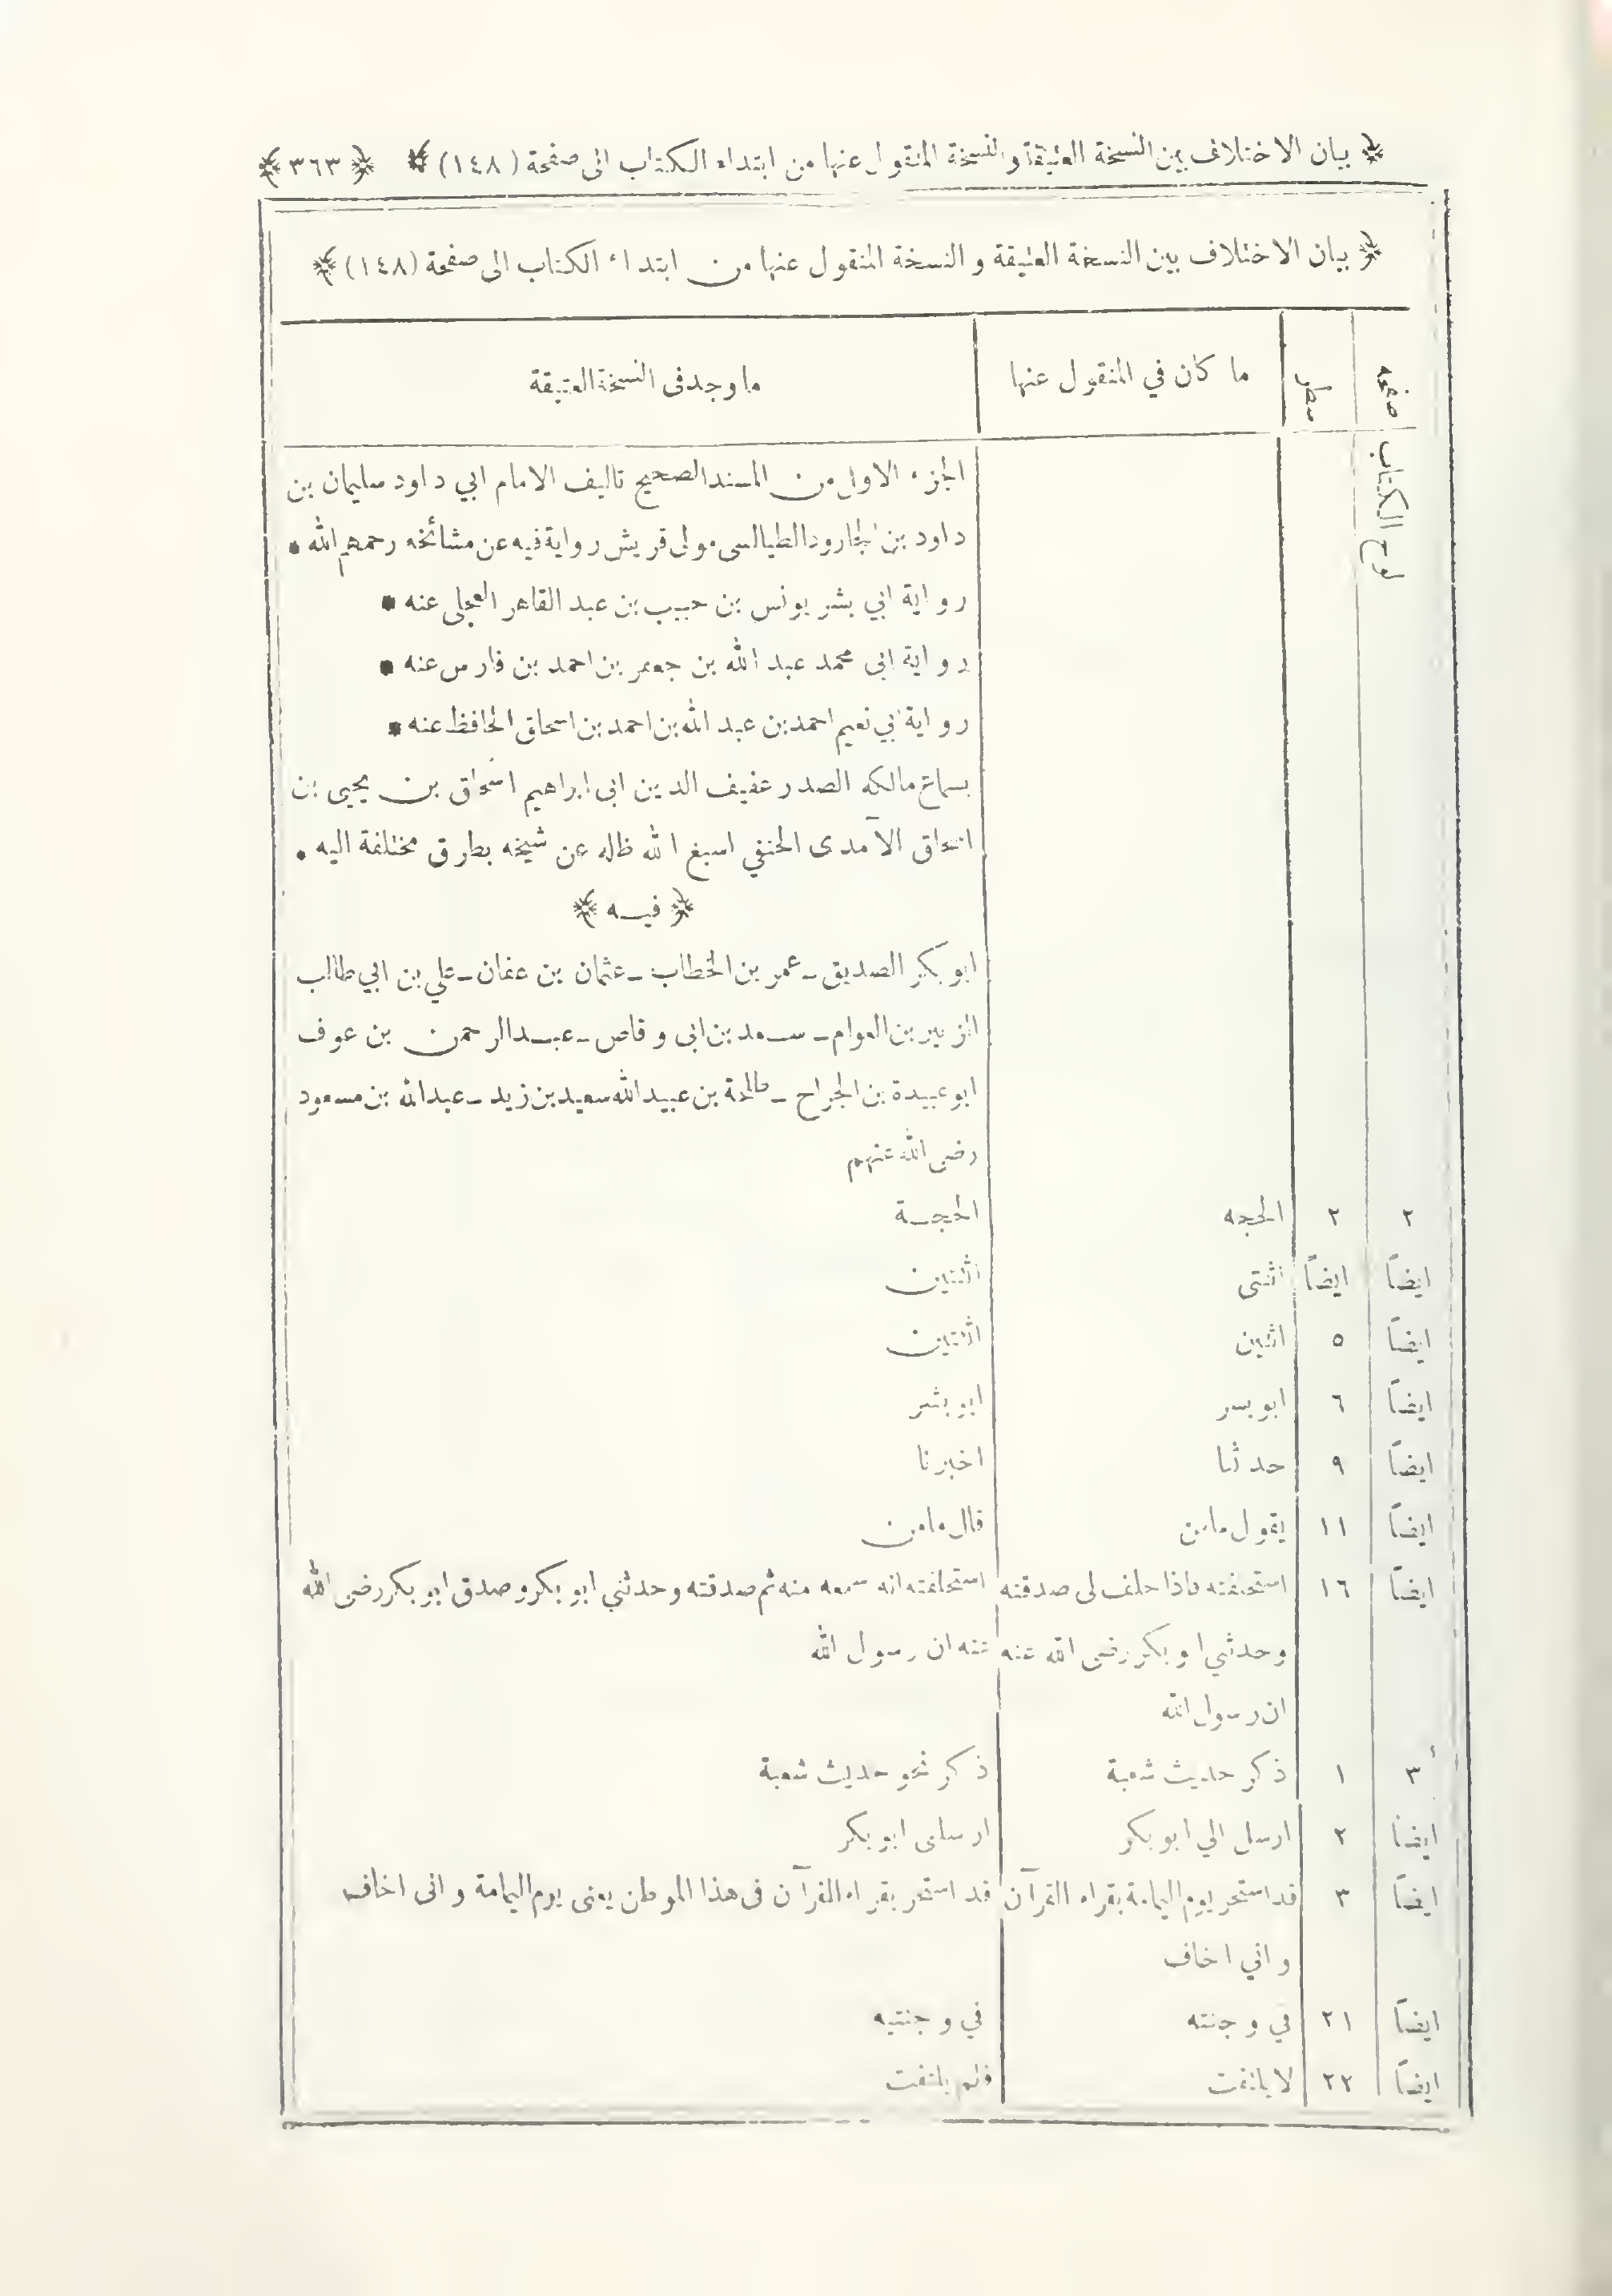 ﴿ بيان الاختلاف بين النسخة العتيقة والنسخة المنقول عنها من ابتداء الكتاب الى صفحة (١٤٨) ﴾ ﴿ ٣٦٣ ﴾
﴿ بيان الاختلاف بين النسخة العتيقة و النسخة المنقول عنها من ابتداء الكتاب الى صفحة (١٤٨) ﴾
صفحه سطر ما كان في المنقول عنها ما وجد فى النسخة العتيقة
لوح الكتاب الجزء الاول من المسند الصحيح تاليف الامام ابي داود سليمان بن
داود بن الجارود الطيالسى مولى قريش رواية فيه عن مشائخه رحمهم الله *
رواية ابي بشر يونس بن حبيب بن عبد القاهر العجلى عنه *
رواية ابى محمد عبد الله بن جعفر بن احمد بن فارس عنه *
رواية ابي نعيم احمد بن عبد الله بن احمد بن اسحاق الحافظ عنه *
بسماع مالكه الصدر عفيف الدين ابى ابراهيم اسحاق بن يحيى بن
اسحاق الآمدى الحنفي اسبغ الله ظله عن شيخه بطرق مختلفة اليه *
﴿ فيه ﴾
ابو بكر الصديق ـ عمر بن الخطاب ـ عثمان بن عفان ـ علي بن ابي طالب
الزبير بن العوام ـ سعد بن ابى وقاص ـ عبد الرحمن بن عوف
ابو عبيدة بن الجراح ـ طلحة بن عبيد الله سعيد بن زيد ـ عبد الله بن مسعود
رضى الله عنهم
٢ ٢ الحجه الحجة
ايضاً ايضاً اثنتى اثنتين
ايضاً ٥ اثنين اثنتين
ايضاً ٦ ابو بسر ابو بشر
ايضاً ٩ حدثنا اخبرنا
ايضاً ١١ يقول مامن قال مامن
ايضاً ١٦ استحلفته فاذا حلف لى صدقته استحلفته انه سمعه منه ثم صدقته وحدثني ابو بكر و صدق ابو بكر رضى الله
وحدثني ابو بكر رضى الله عنه عنه ان رسول الله
ان رسول الله
٣ ١ ذكر حديث شعبة ذكر نحو حديث شعبة
ايضاً ٢ ارسل الي ابو بكر ارسلنى ابو بكر
ايضاً ٣ قد استحر يوم اليمامة بقراء القرآن قد استحر بقراء القرآن فى هذا الموطن يعنى يوم اليمامة و انى اخاف
و اني اخاف
ايضاً ٢١ في وجنته في وجنتيه
ايضاً ٢٢ لا يلتفت فلم يلتفت